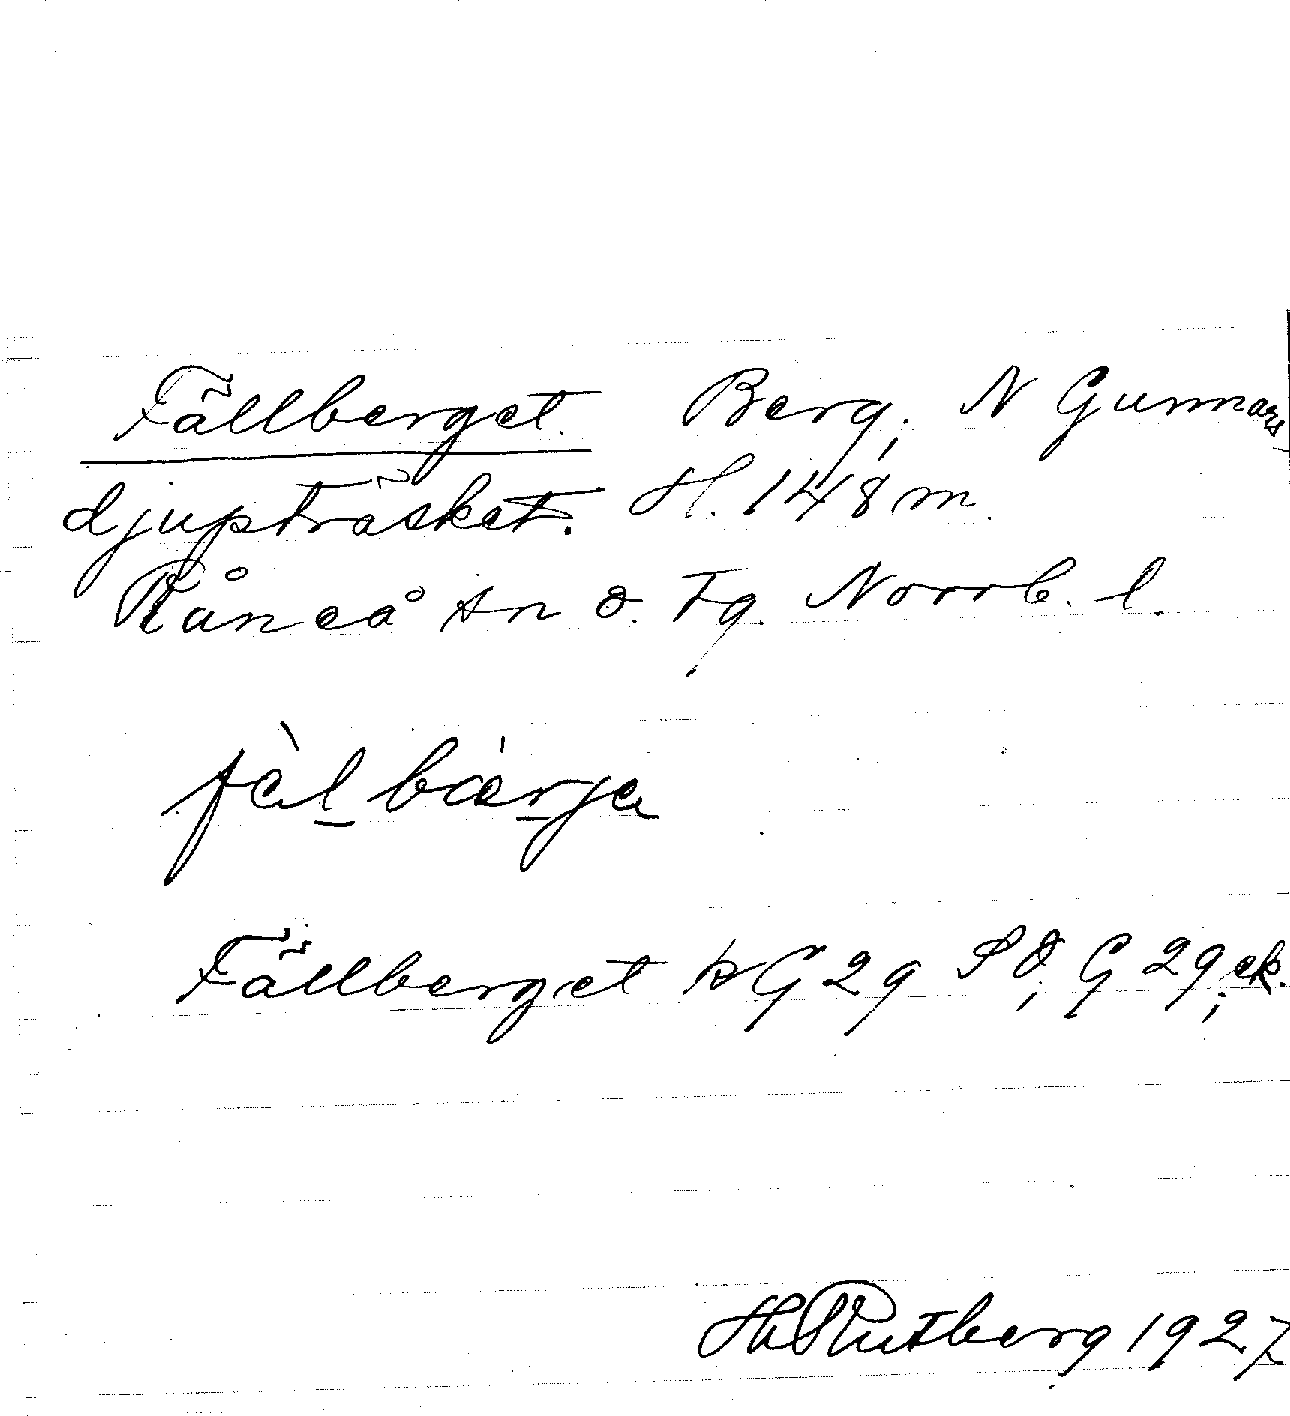 Fällberget. Berg, N Gunnars
djupträsket. H. 148 m.
Råneå sn ö. Tg. Norrb. l.
fàl bærje
Fällberget ks G 29 SÖ, G 29, ek.
H Rutberg 1927